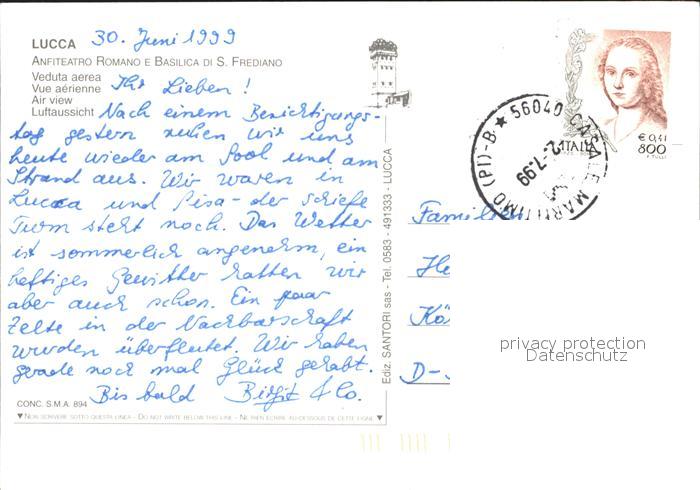 LUCCA
30. Juni 1999
ANFITEATRO ROMANO E BASILICA DI S. FREDIANO
Veduta aerea
Vue aérienne
Air view
Luftaussicht
Ihr Lieben!
Nach einem Besichtigungs-
tag gestern ruhen wir uns
heute wieder am Pool und am
Strand aus. Wir waren in
Lucca und Pisa - der schiefe
Turm steht noch. Das Wetter
ist sommerlich angenehm, ein
heftiges Gewitter hatten wir
aber auch schon. Ein paar
Zelte in der Nachbarschaft
wurden überflutet. Wir haben
gerade noch mal Glück gehabt.
Bis bald Birgit & Co.
CONC. S.M.A. 894
▼ NON SCRIVERE SOTTO QUESTA LINEA - DO NOT WRITE BELOW THIS LINE - NE RIEN ÉCRIRE AU-DESSOUS DE CETTE LIGNE ▼
Ediz. SANTORI sas - Tel. 0583 - 491333 - LUCCA
56040 CASALE MARITTIMO (PI) - B ★
2-7.99
ITALIA
€ 0,41
800
F. TULLI
Familie
He
Kö
D-
privacy protection
Datenschutz